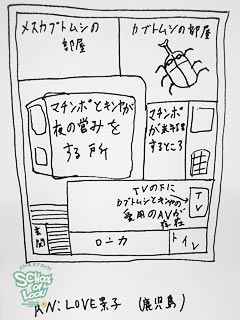 メスカブトムシの
部屋
カブトムシの部屋
マチンポとキンヤが
夜の営みを
する所
マチンポ
が
するところ
TVの下に
カブトムシとキンヤの
愛用のAVが
存在
TV
玄関
ロニカ
トイレ
SCHOOL
OF
LOCK!
RN:LOVE景子 (鹿児島)